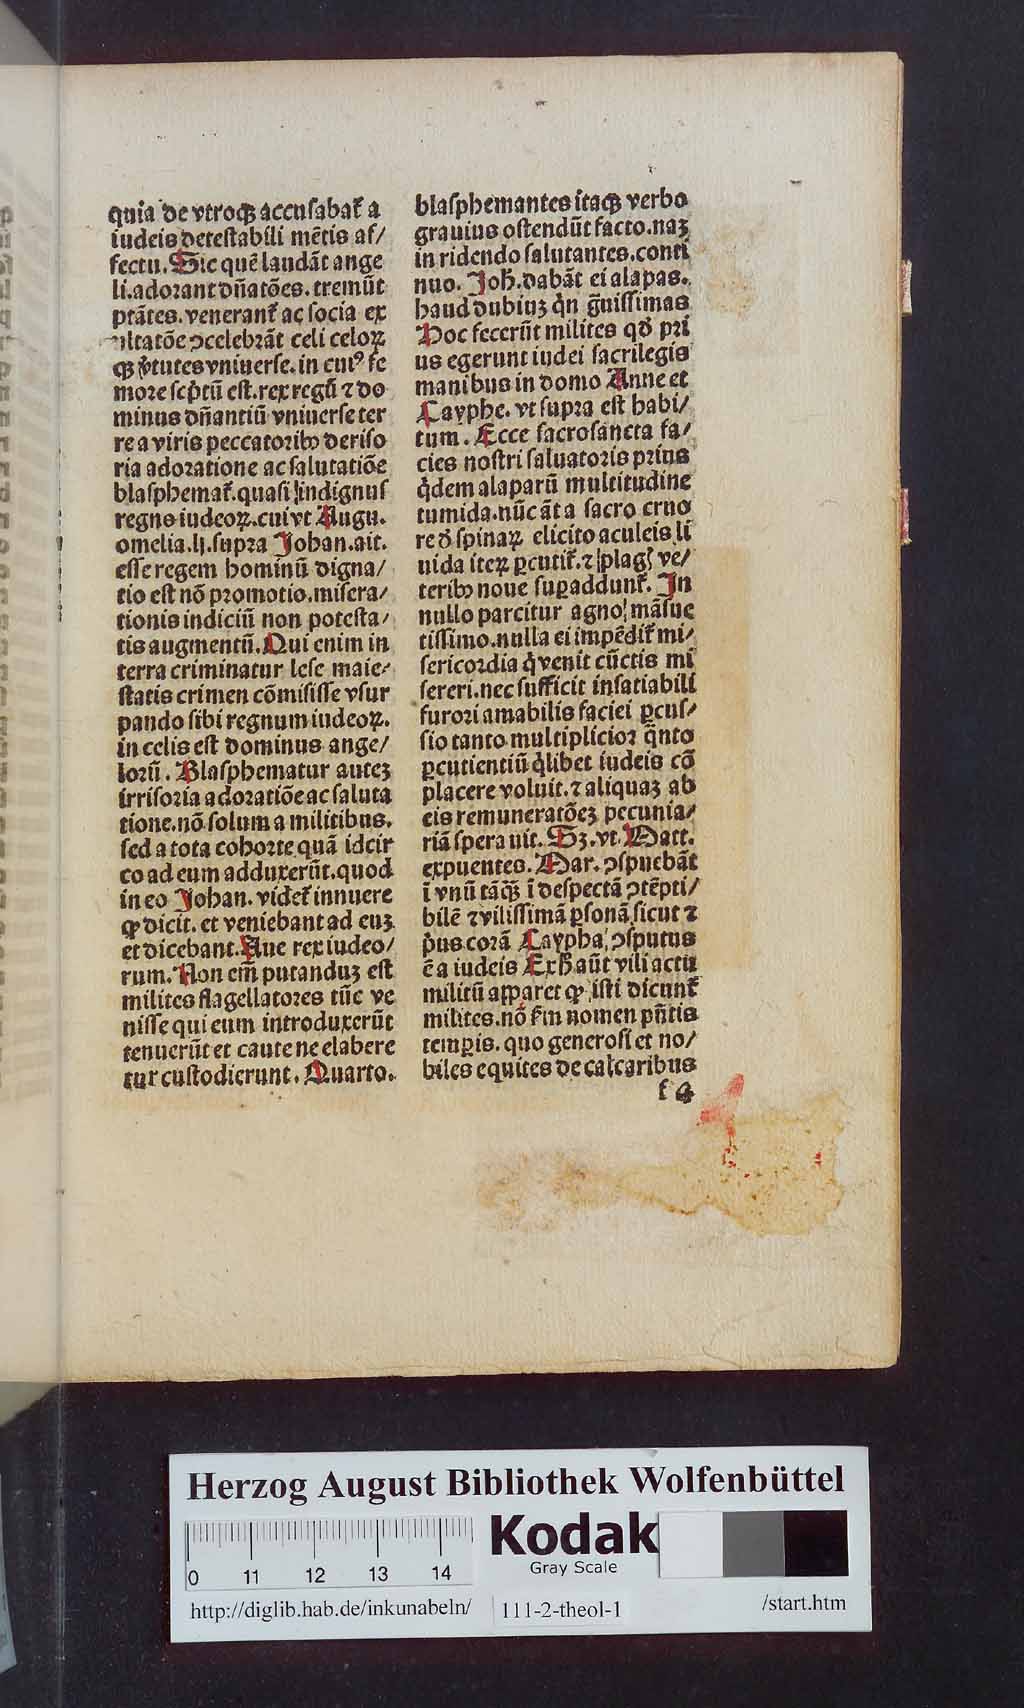 quia de vtroqꝫ accusabat᷑ a
iudeis detestabili mētis af/
fectu. Sic quē laudāt ange
li. adorant dn̄atōes. tremūt
ptātes. venerant᷑ ac socia ex
ultatōe ↄcelebrāt celi celoꝝ
qꝫ v̓tutes vniuerse. in cuiꝰ fe
more scp̄tū est. rex regū ⁊ do
minus dn̄antiū vniuerse ter
re a viris peccatoribꝰ deriso
ria adoratione ac salutatiōe
blasphemat᷑. quasi indignus
regno iudeoꝝ. cui vt Augu.
omelia. lj. supra Johan. ait.
esse regem hominū digna/
tio est nō promotio. misera/
tionis indiciū non potesta/
tis augmentū. Qui enim in
terra criminatur lese maie/
statis crimen cōmisisse vsur
pando sibi regnum iudeoꝝ.
in celis est dominus ange/
lorū. Blasphematur autez
irrisoria adoratiōe ac saluta
tione. nō solum a militibus.
sed a tota cohorte quā idcir
co ad eum adduxerūt. quod
in eo Johan. videt᷑ innuere
ꝙ dicit. et veniebant ad euꝫ
et dicebant. Aue rex iudeo/
rum. Non em̄ putanduꝫ est
milites flagellatores tūc ve
nisse qui eum introduxerūt
tenuerūt et caute ne elabere
tur custodierunt. Quarto.
blasphemantes itaqꝫ verbo
grauius ostendūt facto. naꝫ
in ridendo salutantes. conti
nuo. Joh̄. dabāt ei alapas.
haud dubiuꝫ qͥn gͣuissimas
Hoc fecerūt milites qd̓ pri
us egerunt iudei sacrilegis
manibus in domo Anne et
Cayphe. vt supra est habi/
tum. Ecce sacrosancta fa/
cies nostri saluatoris prius
qͥdem alaparū multitudine
tumida. nūc āt a sacro cruo
re d̓ spinaꝝ elicito aculeis li
uida iteꝝ ꝑcutit᷑. ⁊ plagꝭ ve/
teribꝰ noue suꝑaddunt᷑. In
nullo parcitur agno māsue
tissimo. nulla ei impēdit᷑ mi/
sericordia qͥ venit cūctis mi
sereri. nec sufficit insatiabili
furori amabilis faciei ꝑcus/
sio tanto multiplicior qͣnto
ꝑcutientiū qͥlibet iudeis cō
placere voluit. ⁊ aliquaꝫ ab
eis remuneratōeꝫ pecunia/
riā spera uit. Sꝫ. vt. Matt.
expuentes. Mar. ↄspuebāt
ī vnū tāqͣꝫ ī despectā ↄtēpti/
bilē ⁊ vilissimā ꝑsonā sicut ⁊
pͥus corā Caypha ↄsputus
ē a iudeis Ex h̄ aūt vili actu
militū apparet ꝙ isti dicunt᷑
milites. nō ẜm nomen pn̄tis
temꝑis. quo generosi et no/
biles equites de calcaribus
k 4
Herzog August Bibliothek Wolfenbüttel
0 11 12 13 14
Kodak
Gray Scale
http://diglib.hab.de/inkunabeln/ 111-2-theol-1 /start.htm